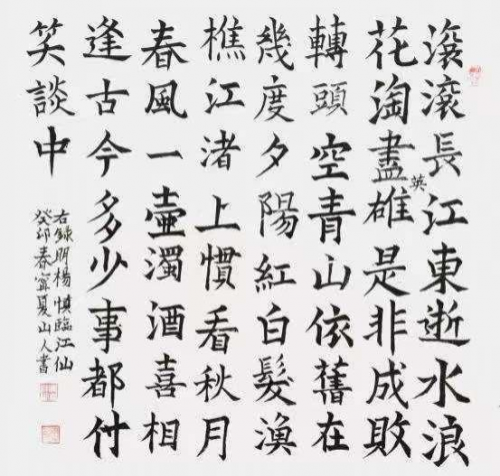 滾滾長江東逝水浪
花淘盡英雄是非成敗
轉頭空青山依舊在
幾度夕陽紅白髮漁
樵江渚上慣看秋月
春風一壺濁酒喜相
逢古今多少事都付
笑談中
右錄明楊慎臨江仙
癸卯春寧夏山人書